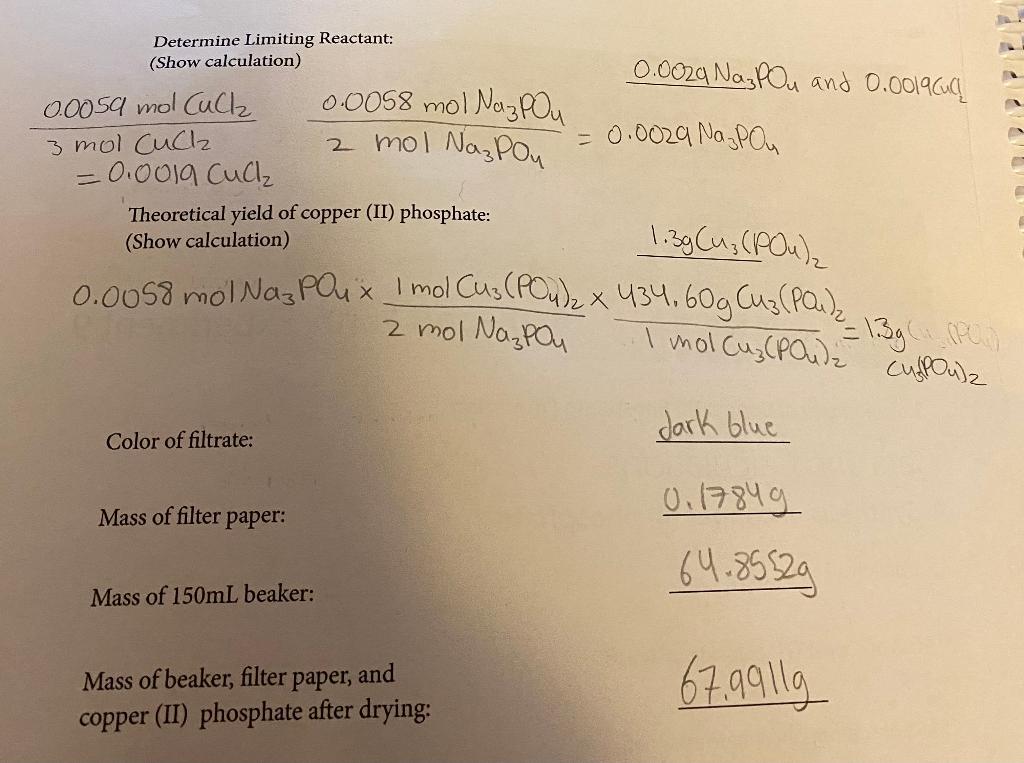 Determine Limiting Reactant:
(Show calculation)
0.0029 Na3PO4 and 0.0019 CuCl2
0.0059 mol CuCl2
3 mol CuCl2
= 0.0019 CuCl2
0.0058 mol Na3PO4
2 mol Na3PO4
= 0.0029 Na3PO4
Theoretical yield of copper (II) phosphate:
(Show calculation)
1.3g Cu3(PO4)2
0.0058 mol Na3PO4 x 1 mol Cu3(PO4)2 x 434.60g Cu3(PO4)2 = 1.3g
2 mol Na3PO4 1 mol Cu3(PO4)2 Cu3(PO4)2
Color of filtrate: dark blue
Mass of filter paper: 0.1784g
Mass of 150mL beaker: 64.8552g
Mass of beaker, filter paper, and
copper (II) phosphate after drying: 67.9911g